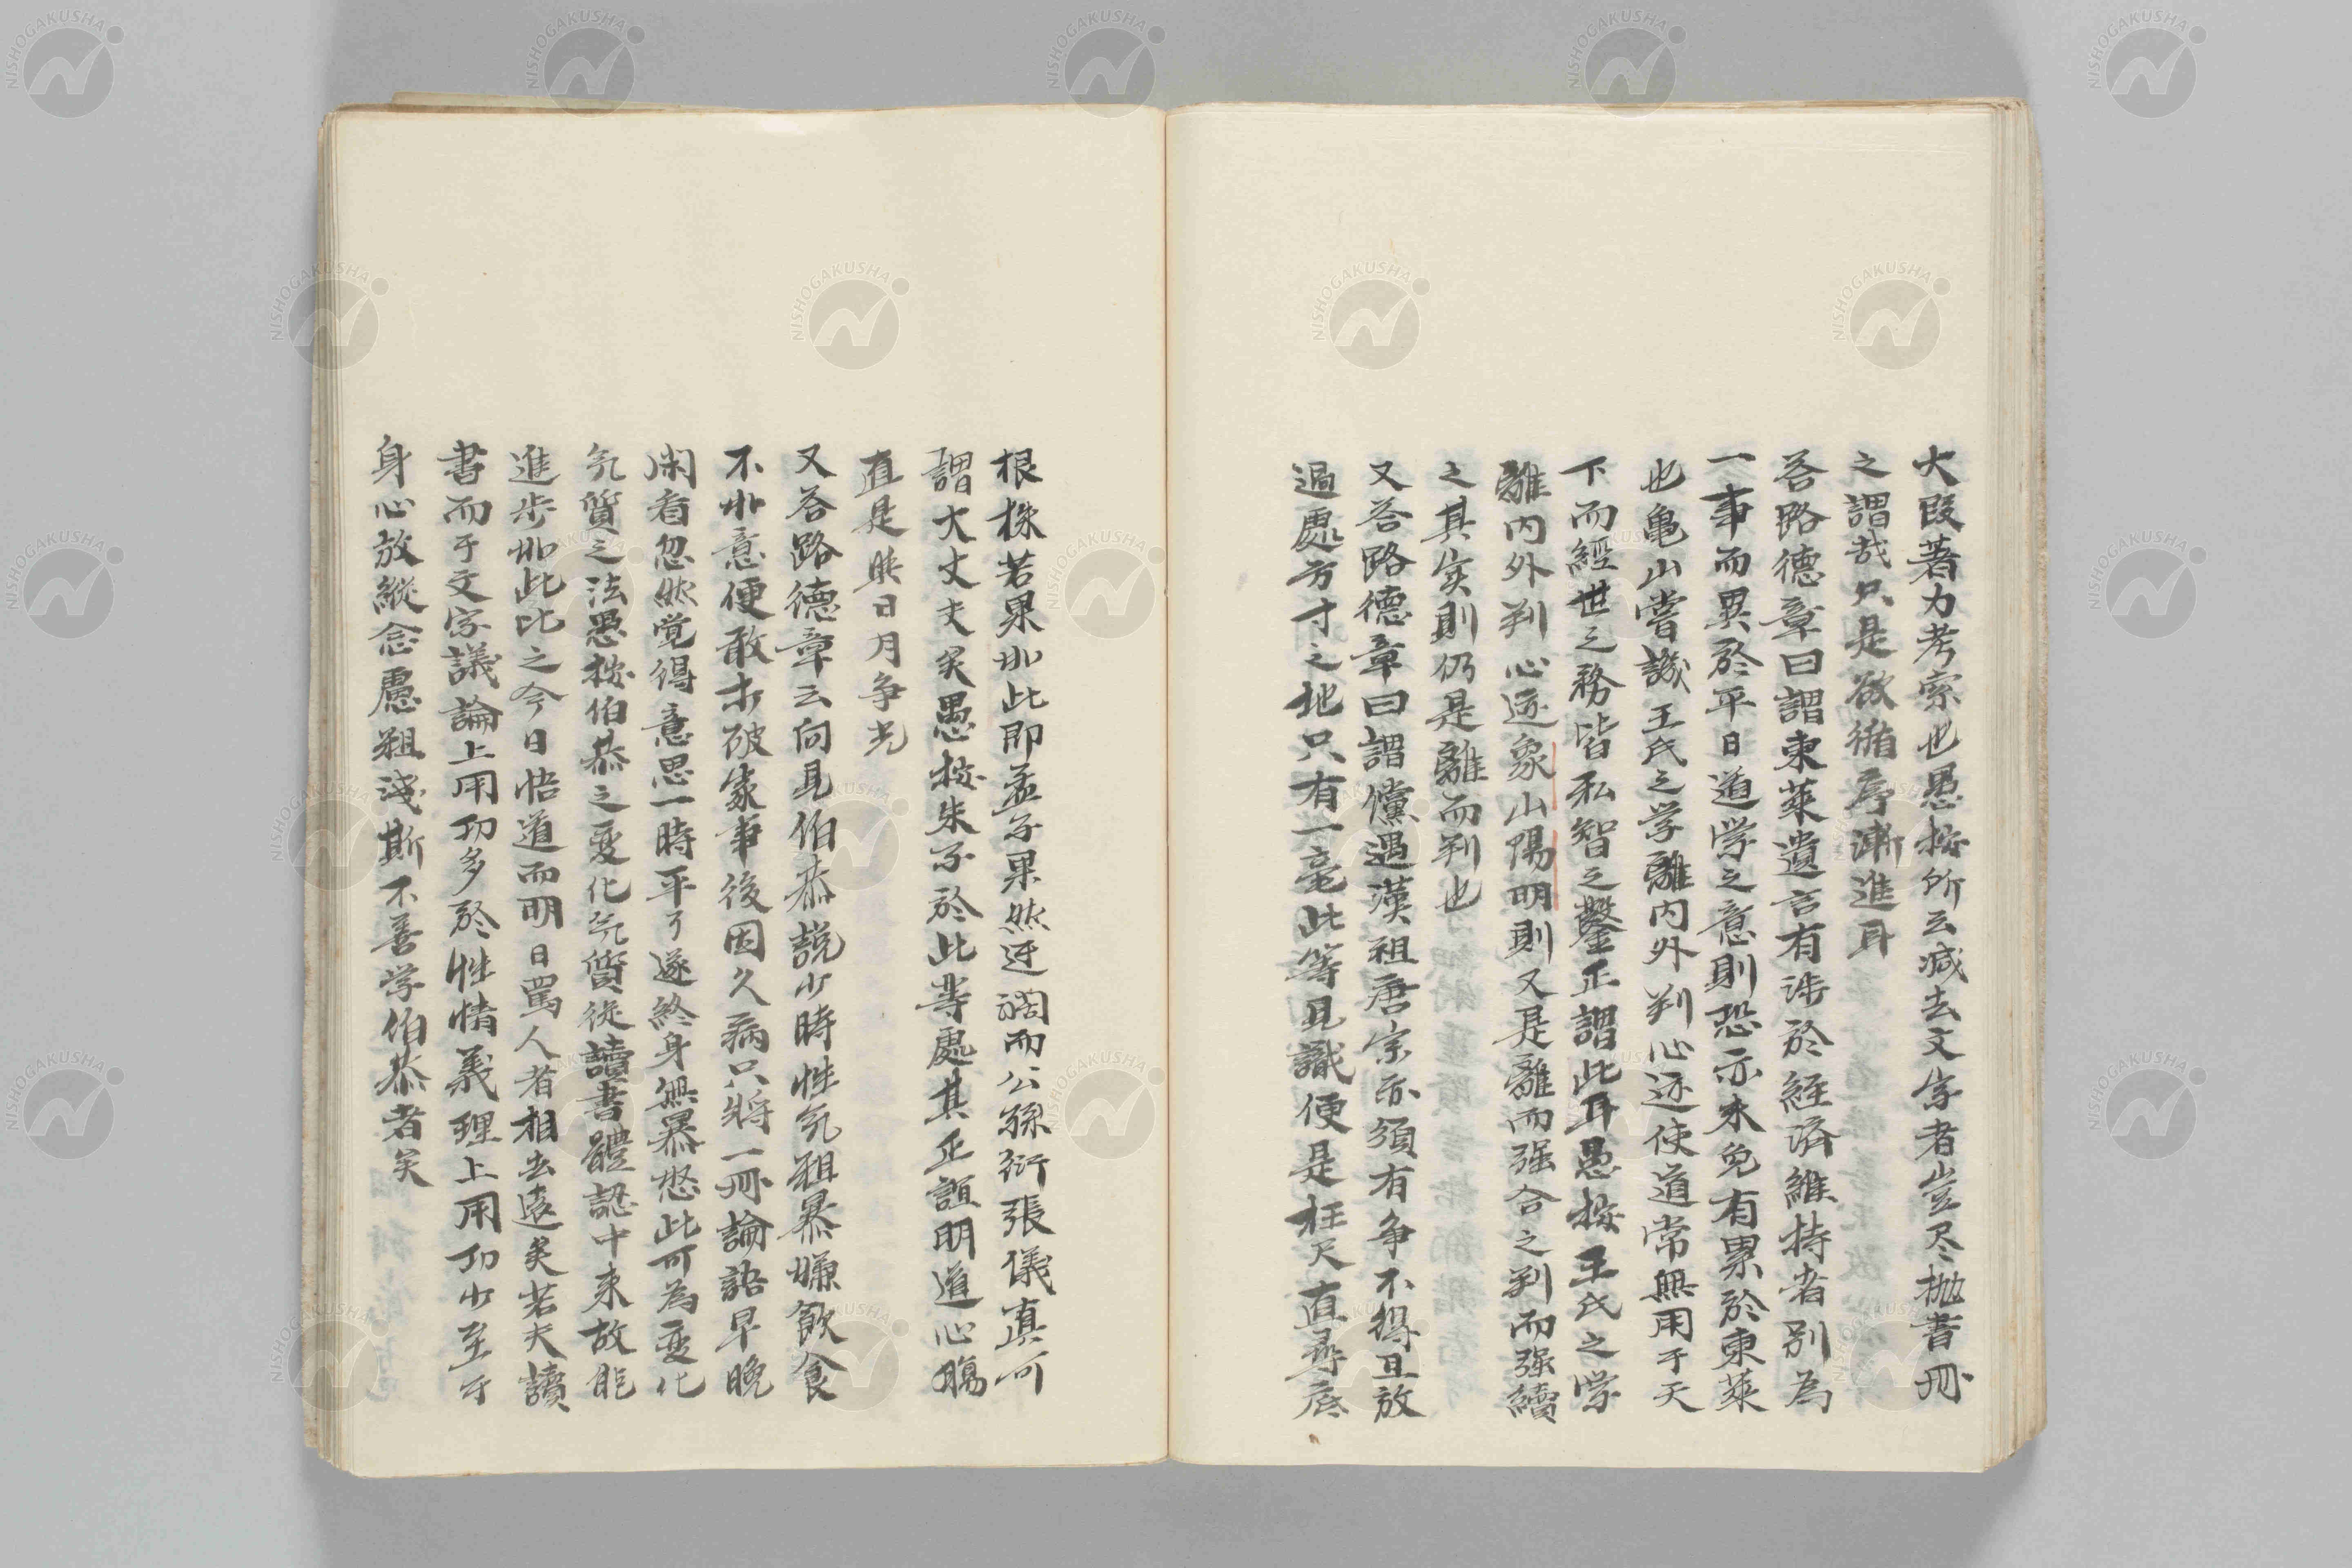 大段著力考索也愚按所云減去文字者豈尽抛書冊
之謂哉只是欲循序漸進耳
答路德章曰謂東萊遺言有涉於経済維持者別為
一事而異於平日道学之意則恐亦未免有累於東萊
也亀山嘗譏王氏之学離内外判心迹使道常無用于天
下而經世之務皆私智之鑿正謂此耳愚按王氏之学
離内外判心迹象山陽明則又是離而强合之判而强續
之其実則仍是離而判也
又答路德章曰謂儻遇漢祖唐宗亦須有争不得且放
過處方寸之地只有一毫此等見識便是枉尺直尋底
根株若果如此即孟子果然迂闊而公孫衍張儀真可
謂大丈夫矣愚按朱子於此等處其正誼明道心腸
直是與日月争光
又答路德章云向見伯恭説少時性気粗暴嫌飲食
不如意便敢打破家事後因久病只将一冊論語早晩
閑看忽然覚得意思一時平了遂終身無暴怒此可為変化
気質之法愚按伯恭之変化気質従讀書體認中来故能
進步如此比之今日悟道而明日罵人者相去遠矣若夫讀
書而于文字議論上用功多於性情義理上用功少至于
身心放縦念慮粗淺斯不善学伯恭者矣
NISHOGAKUSHA